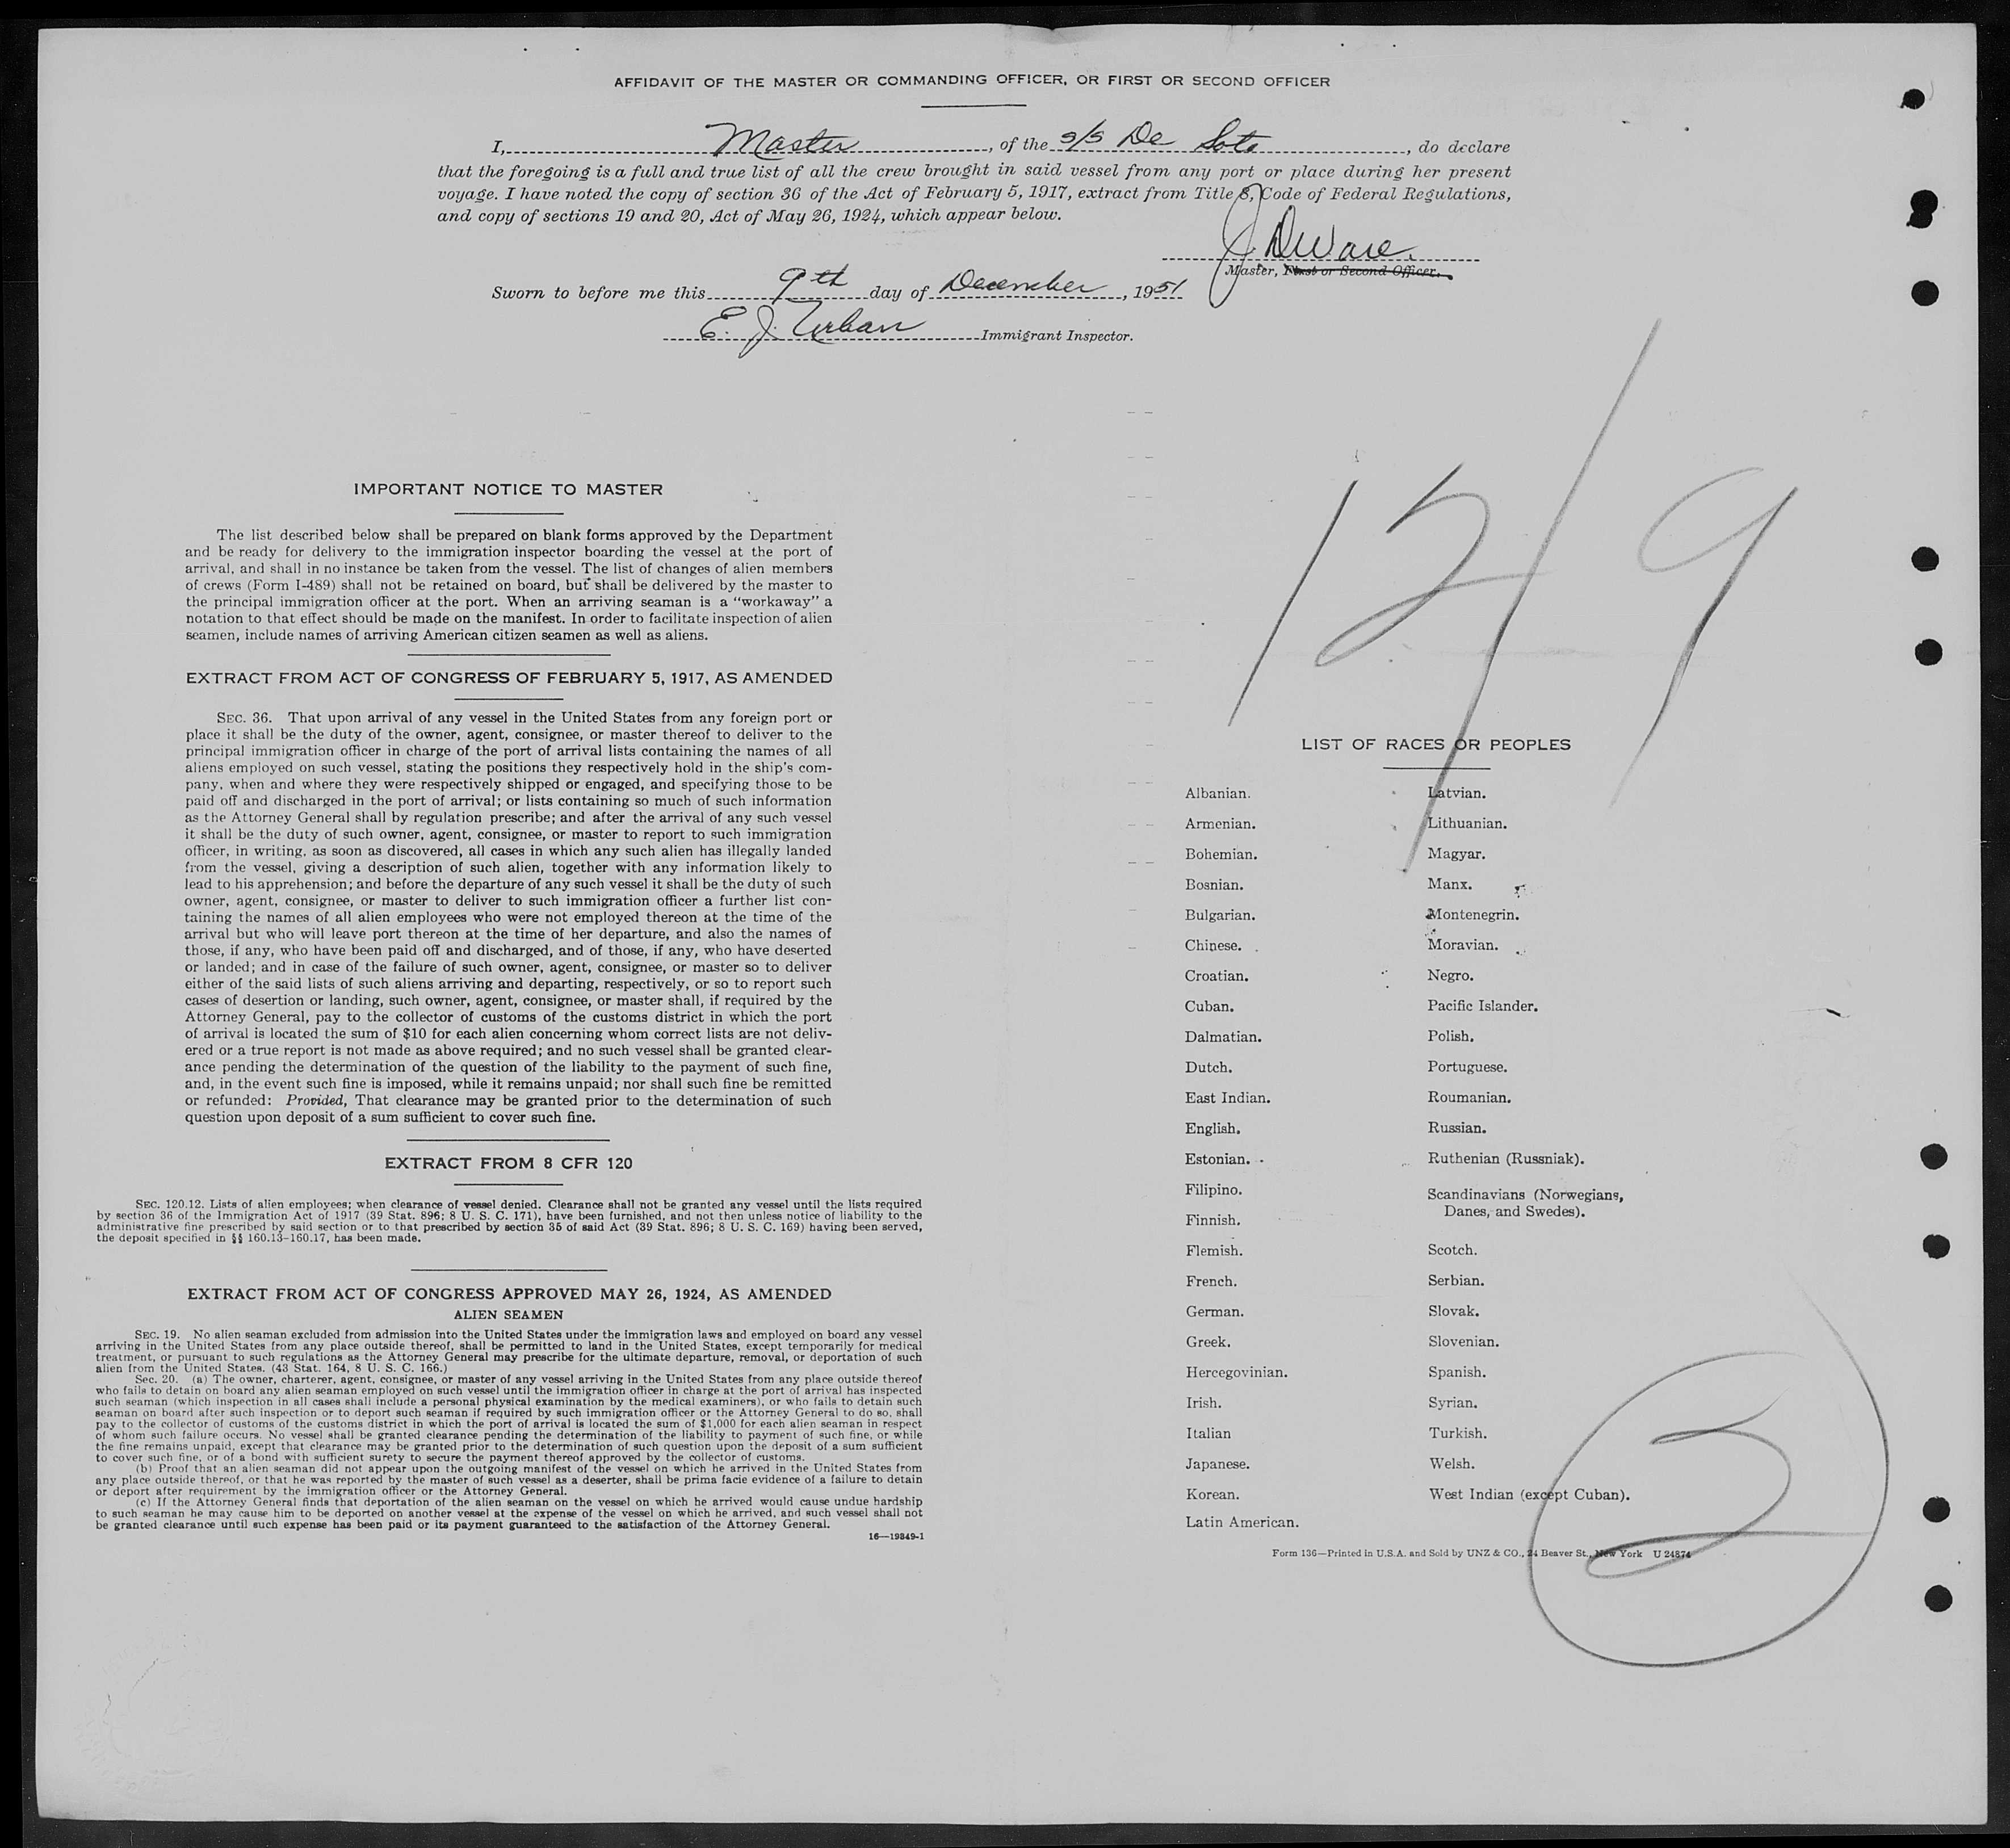 AFFIDAVIT OF THE MASTER OR COMMANDING OFFICER, OR FIRST OR SECOND OFFICER
I, Master, of the s/s De Soto, do declare
that the foregoing is a full and true list of all the crew brought in said vessel from any port or place during her present
voyage. I have noted the copy of section 36 of the Act of February 5, 1917, extract from Title 8, Code of Federal Regulations,
and copy of sections 19 and 20, Act of May 26, 1924, which appear below.
J DWare.
Master, First or Second Officer.
Sworn to before me this 9th day of December, 1951
E. J. Urban Immigrant Inspector.
12/9
IMPORTANT NOTICE TO MASTER
The list described below shall be prepared on blank forms approved by the Department
and be ready for delivery to the immigration inspector boarding the vessel at the port of
arrival, and shall in no instance be taken from the vessel. The list of changes of alien members
of crews (Form I-489) shall not be retained on board, but shall be delivered by the master to
the principal immigration officer at the port. When an arriving seaman is a "workaway" a
notation to that effect should be made on the manifest. In order to facilitate inspection of alien
seamen, include names of arriving American citizen seamen as well as aliens.
EXTRACT FROM ACT OF CONGRESS OF FEBRUARY 5, 1917, AS AMENDED
SEC. 36. That upon arrival of any vessel in the United States from any foreign port or
place it shall be the duty of the owner, agent, consignee, or master thereof to deliver to the
principal immigration officer in charge of the port of arrival lists containing the names of all
aliens employed on such vessel, stating the positions they respectively hold in the ship's com-
pany, when and where they were respectively shipped or engaged, and specifying those to be
paid off and discharged in the port of arrival; or lists containing so much of such information
as the Attorney General shall by regulation prescribe; and after the arrival of any such vessel
it shall be the duty of such owner, agent, consignee, or master to report to such immigration
officer, in writing, as soon as discovered, all cases in which any such alien has illegally landed
from the vessel, giving a description of such alien, together with any information likely to
lead to his apprehension; and before the departure of any such vessel it shall be the duty of such
owner, agent, consignee, or master to deliver to such immigration officer a further list con-
taining the names of all alien employees who were not employed thereon at the time of the
arrival but who will leave port thereon at the time of her departure, and also the names of
those, if any, who have been paid off and discharged, and of those, if any, who have deserted
or landed; and in case of the failure of such owner, agent, consignee, or master so to deliver
either of the said lists of such aliens arriving and departing, respectively, or so to report such
cases of desertion or landing, such owner, agent, consignee, or master shall, if required by the
Attorney General, pay to the collector of customs of the customs district in which the port
of arrival is located the sum of $10 for each alien concerning whom correct lists are not deliv-
ered or a true report is not made as above required; and no such vessel shall be granted clear-
ance pending the determination of the question of the liability to the payment of such fine,
and, in the event such fine is imposed, while it remains unpaid; nor shall such fine be remitted
or refunded: Provided, That clearance may be granted prior to the determination of such
question upon deposit of a sum sufficient to cover such fine.
EXTRACT FROM 8 CFR 120
SEC. 120.12. Lists of alien employees; when clearance of vessel denied. Clearance shall not be granted any vessel until the lists required
by section 36 of the Immigration Act of 1917 (39 Stat. 896; 8 U. S. C. 171), have been furnished, and not then unless notice of liability to the
administrative fine prescribed by said section or to that prescribed by section 35 of said Act (39 Stat. 896; 8 U. S. C. 169) having been served,
the deposit specified in §§ 160.13–160.17, has been made.
EXTRACT FROM ACT OF CONGRESS APPROVED MAY 26, 1924, AS AMENDED
ALIEN SEAMEN
SEC. 19. No alien seaman excluded from admission into the United States under the immigration laws and employed on board any vessel
arriving in the United States from any place outside thereof, shall be permitted to land in the United States, except temporarily for medical
treatment, or pursuant to such regulations as the Attorney General may prescribe for the ultimate departure, removal, or deportation of such
alien from the United States. (43 Stat. 164, 8 U. S. C. 166.)
Sec. 20. (a) The owner, charterer, agent, consignee, or master of any vessel arriving in the United States from any place outside thereof
who fails to detain on board any alien seaman employed on such vessel until the immigration officer in charge at the port of arrival has inspected
such seaman (which inspection in all cases shall include a personal physical examination by the medical examiners), or who fails to detain such
seaman on board after such inspection or to deport such seaman if required by such immigration officer or the Attorney General to do so, shall
pay to the collector of customs of the customs district in which the port of arrival is located the sum of $1,000 for each alien seaman in respect
of whom such failure occurs. No vessel shall be granted clearance pending the determination of the liability to payment of such fine, or while
the fine remains unpaid, except that clearance may be granted prior to the determination of such question upon the deposit of a sum sufficient
to cover such fine, or of a bond with sufficient surety to secure the payment thereof approved by the collector of customs.
(b) Proof that an alien seaman did not appear upon the outgoing manifest of the vessel on which he arrived in the United States from
any place outside thereof, or that he was reported by the master of such vessel as a deserter, shall be prima facie evidence of a failure to detain
or deport after requirement by the immigration officer or the Attorney General.
(c) If the Attorney General finds that deportation of the alien seaman on the vessel on which he arrived would cause undue hardship
to such seaman he may cause him to be deported on another vessel at the expense of the vessel on which he arrived, and such vessel shall not
be granted clearance until such expense has been paid or its payment guaranteed to the satisfaction of the Attorney General.
16—19849-1
LIST OF RACES OR PEOPLES
Albanian.
Armenian.
Bohemian.
Bosnian.
Bulgarian.
Chinese.
Croatian.
Cuban.
Dalmatian.
Dutch.
East Indian.
English.
Estonian.
Filipino.
Finnish.
Flemish.
French.
German.
Greek.
Hercegovinian.
Irish.
Italian
Japanese.
Korean.
Latin American.
Latvian.
Lithuanian.
Magyar.
Manx.
Montenegrin.
Moravian.
Negro.
Pacific Islander.
Polish.
Portuguese.
Roumanian.
Russian.
Ruthenian (Russniak).
Scandinavians (Norwegians,
Danes, and Swedes).
Scotch.
Serbian.
Slovak.
Slovenian.
Spanish.
Syrian.
Turkish.
Welsh.
West Indian (except Cuban).
Form 136—Printed in U.S.A. and Sold by UNZ & CO., 24 Beaver St., New York U 24874